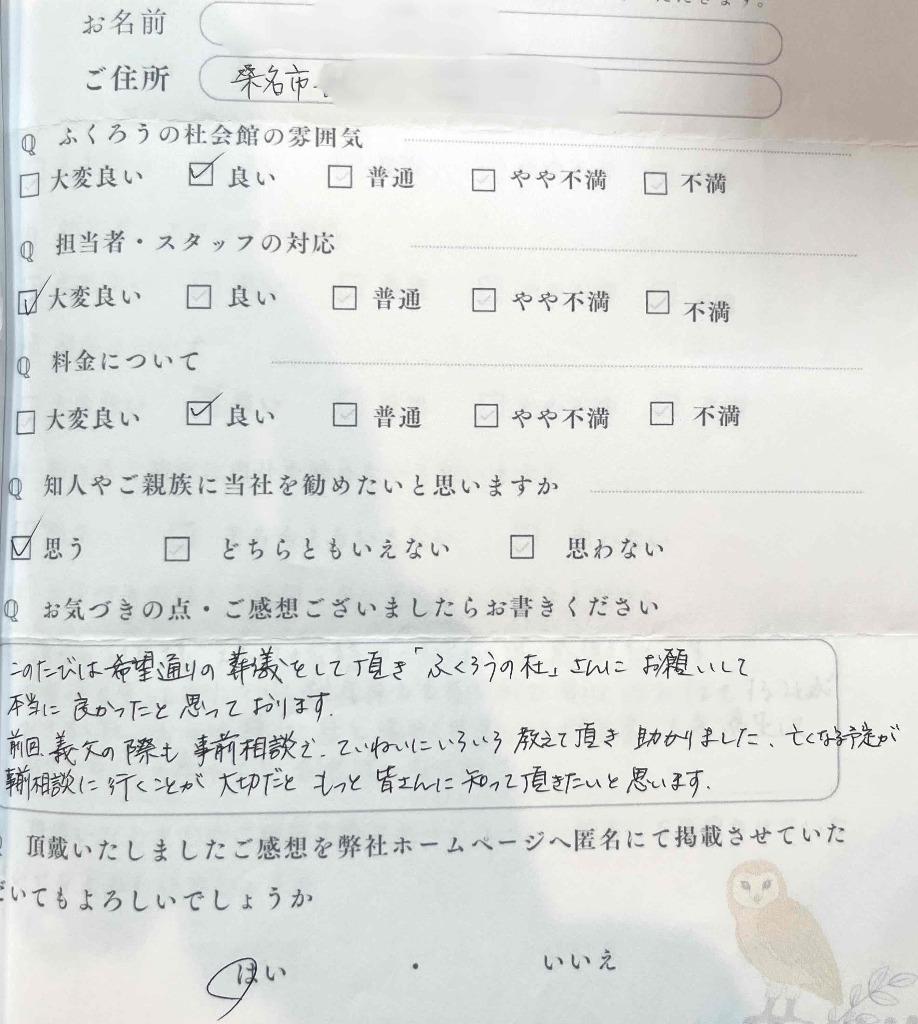 お名前
ご住所 桑名市
Q ふくろうの杜会館の雰囲気
大変良い 良い 普通 やや不満 不満
Q 担当者・スタッフの対応
大変良い 良い 普通 やや不満 不満
Q 料金について
大変良い 良い 普通 やや不満 不満
Q 知人やご親族に当社を勧めたいと思いますか
思う どちらともいえない 思わない
Q お気づきの点・ご感想ございましたらお書きください
このたびは希望通りの葬儀をして頂き「ふくろうの杜」さんにお願いして
本当に良かったと思っております。
前回義父の際も事前相談で、ていねいにいろいろ教えて頂き助かりました、亡くなる予定が
事前相談に行くことが大切だともっと皆さんに知って頂きたいと思います。
頂戴いたしましたご感想を弊社ホームページへ匿名にて掲載させていた
だいてもよろしいでしょうか
はい ・ いいえ